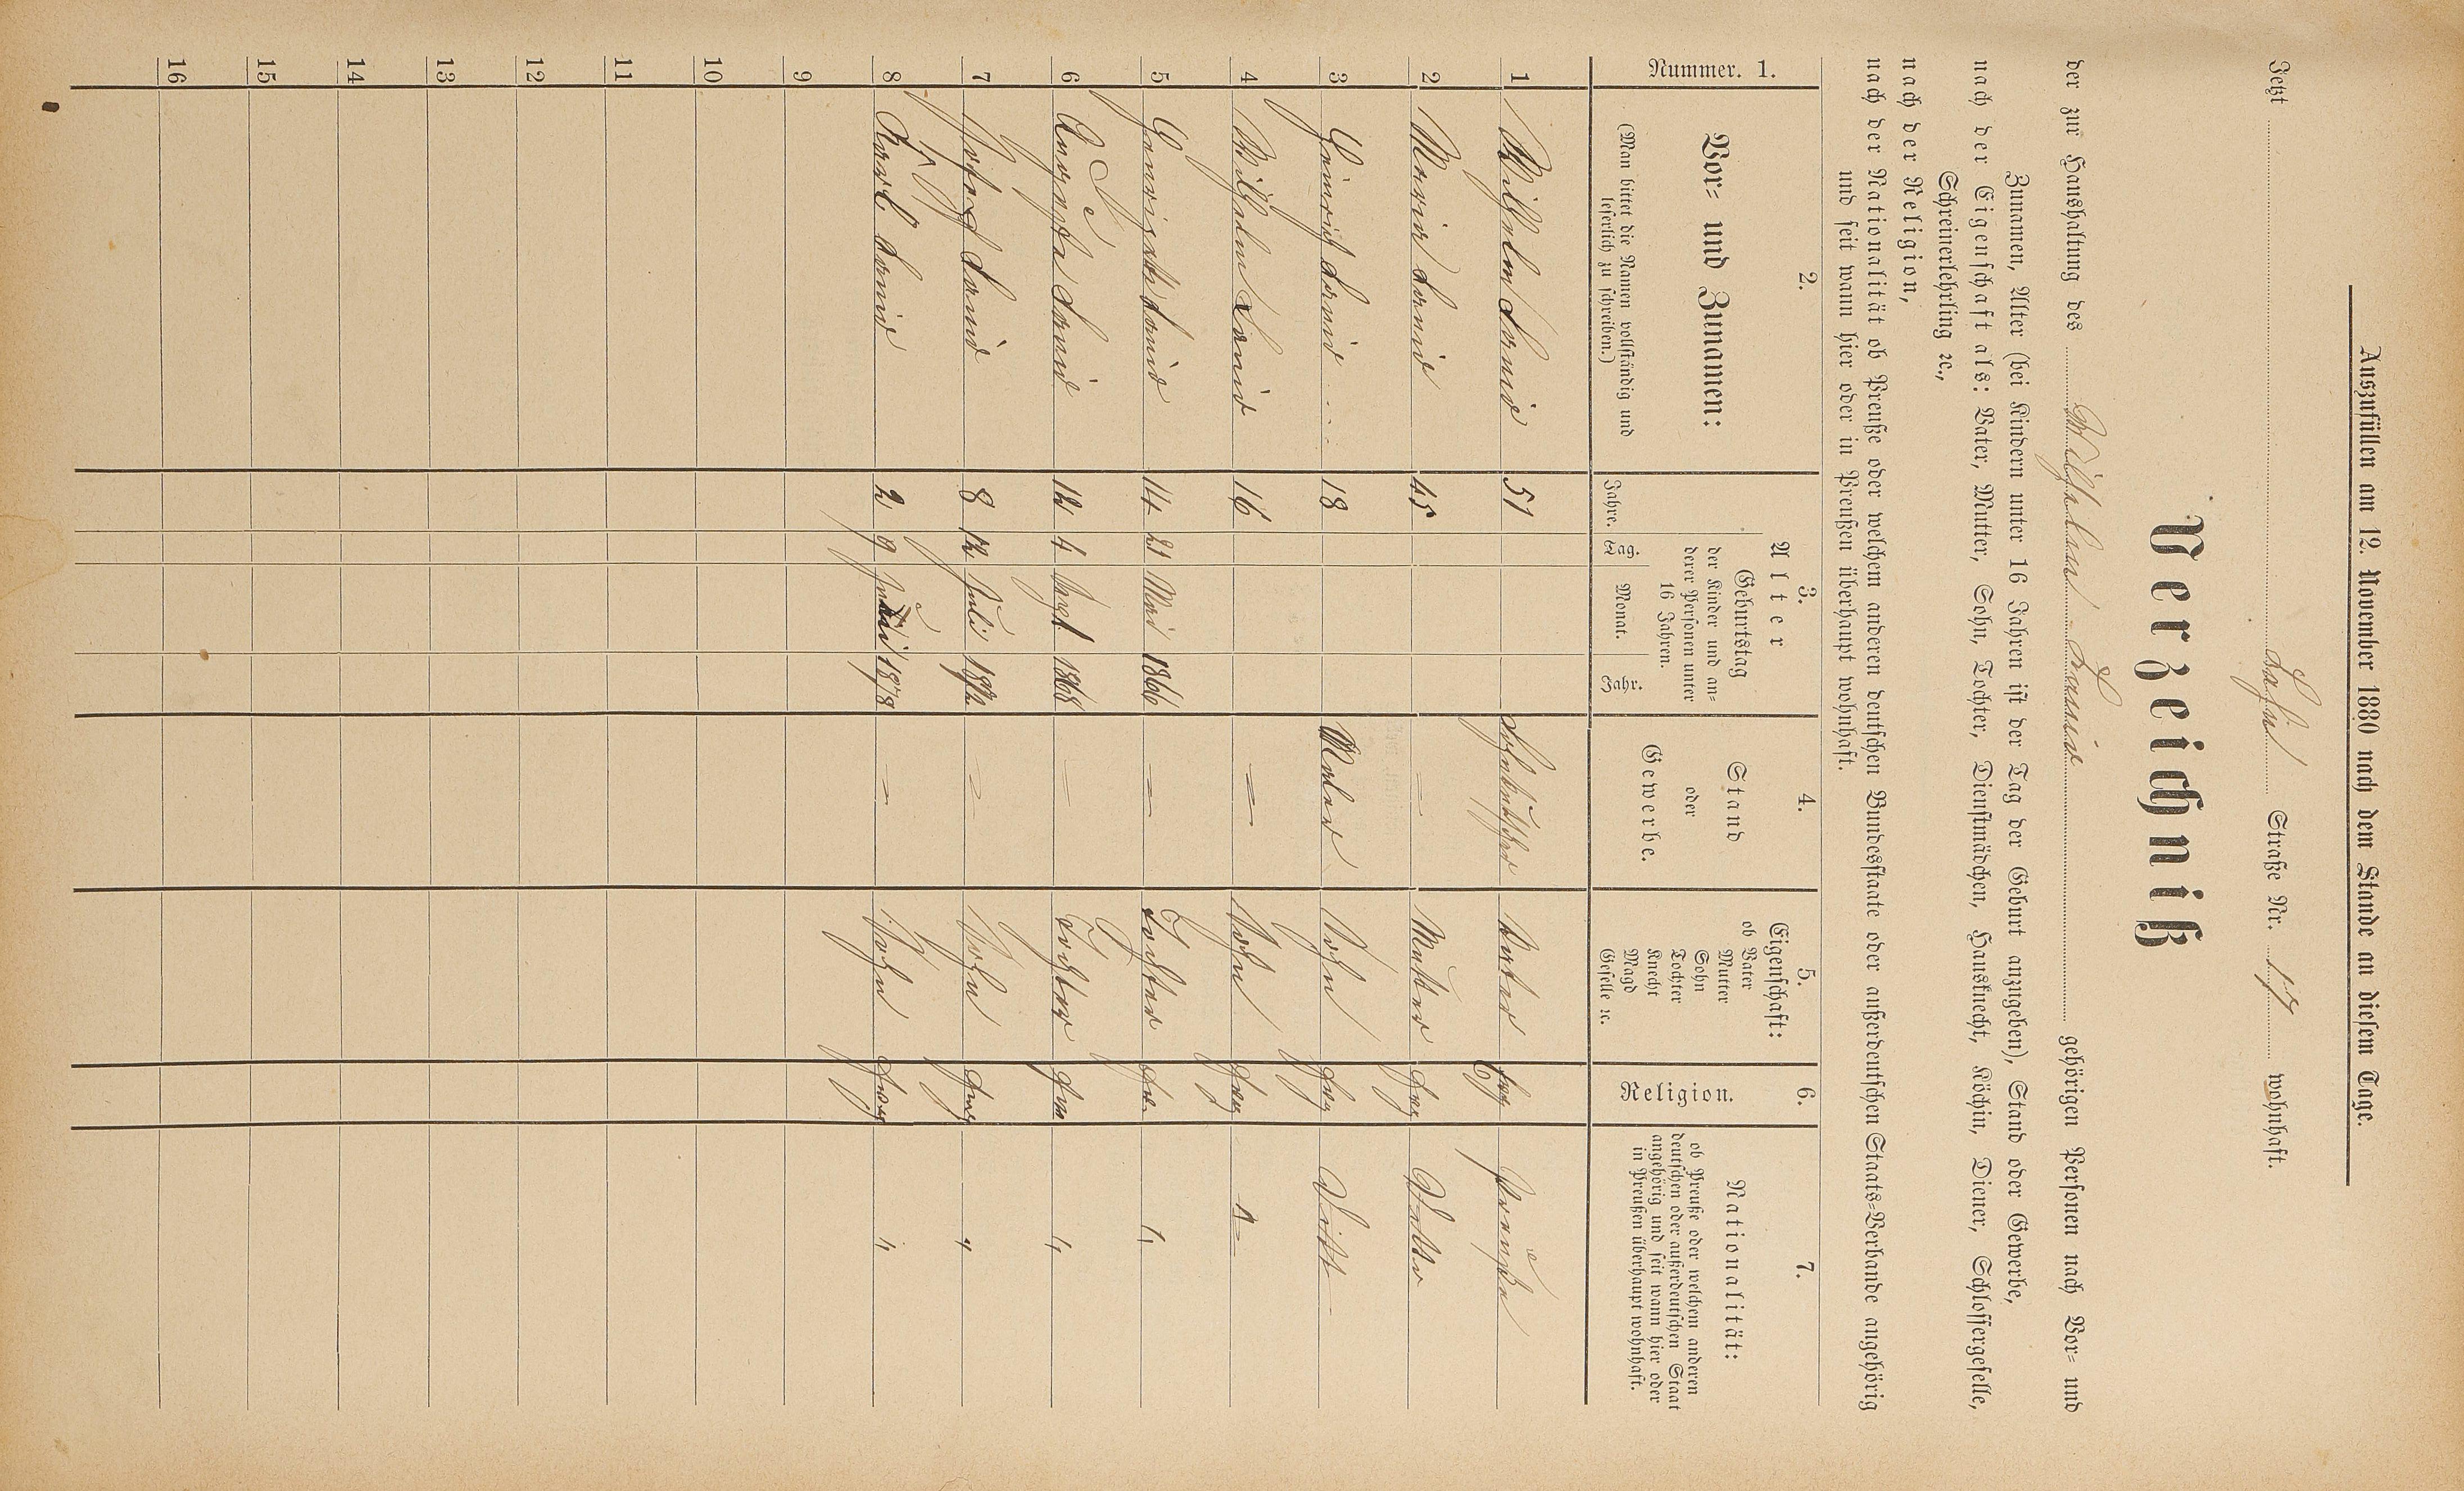 Auszufüllen am 12. November 1880 nach dem Stande an diesem Tage.
Jetzt Lahn Straße Nr. 17 wohnhaft.
Verzeichniß
der zur Haushaltung des Wilhelm gehörigen Personen nach Vor= und
Zunamen, Alter (bei Kindern unter 16 Jahren ist der Tag der Geburt anzugeben), Stand oder Gewerbe,
nach der Eigenschaft als: Vater, Mutter, Sohn, Tochter, Dienstmädchen, Hausknecht, Köchin, Diener, Schlossergeselle,
Schreinerlehrling ꝛc.,
nach der Religion,
nach der Nationalität ob Preuße oder welchem anderen deutschen Bundesstaate oder außerdeutschen Staats=Verbande angehörig
und seit wann hier oder in Preußen überhaupt wohnhaft.
Nummer. 1.
2.
Vor= und Zunamen:
(Man bittet die Namen vollständig und
leserlich zu schreiben.)
3.
Alter
Jahre.
Geburtstag
der Kinder und an=
derer Personen unter
16 Jahren.
Tag. Monat. Jahr.
4.
Stand
oder
Gewerbe.
5.
Eigenschaft:
ob Vater
Mutter
Sohn
Tochter
Knecht
Magd
Geselle ꝛc.
6.
Religion.
7.
Nationalität:
ob Preuße oder welchem anderen
deutschen oder außerdeutschen Staat
angehörig und seit wann hier oder
in Preußen überhaupt wohnhaft.
1 Wilhelm 51 Vater Evg Preuße
2 Maria 45 = Mutter Evg
3 Heinrich 18 Maler Sohn Evg
4 Wilhelm 16 = Sohn Evg
5 14 21 Mai 1866 = Tochter Ev
6 Auguste 12 4 Sept 1868 = Tochter Evg "
7 Josef 8 12 Juli 1872 = Sohn Evg "
8 Karl 2 9 1878 = Sohn Evg "
9
10
11
12
13
14
15
16